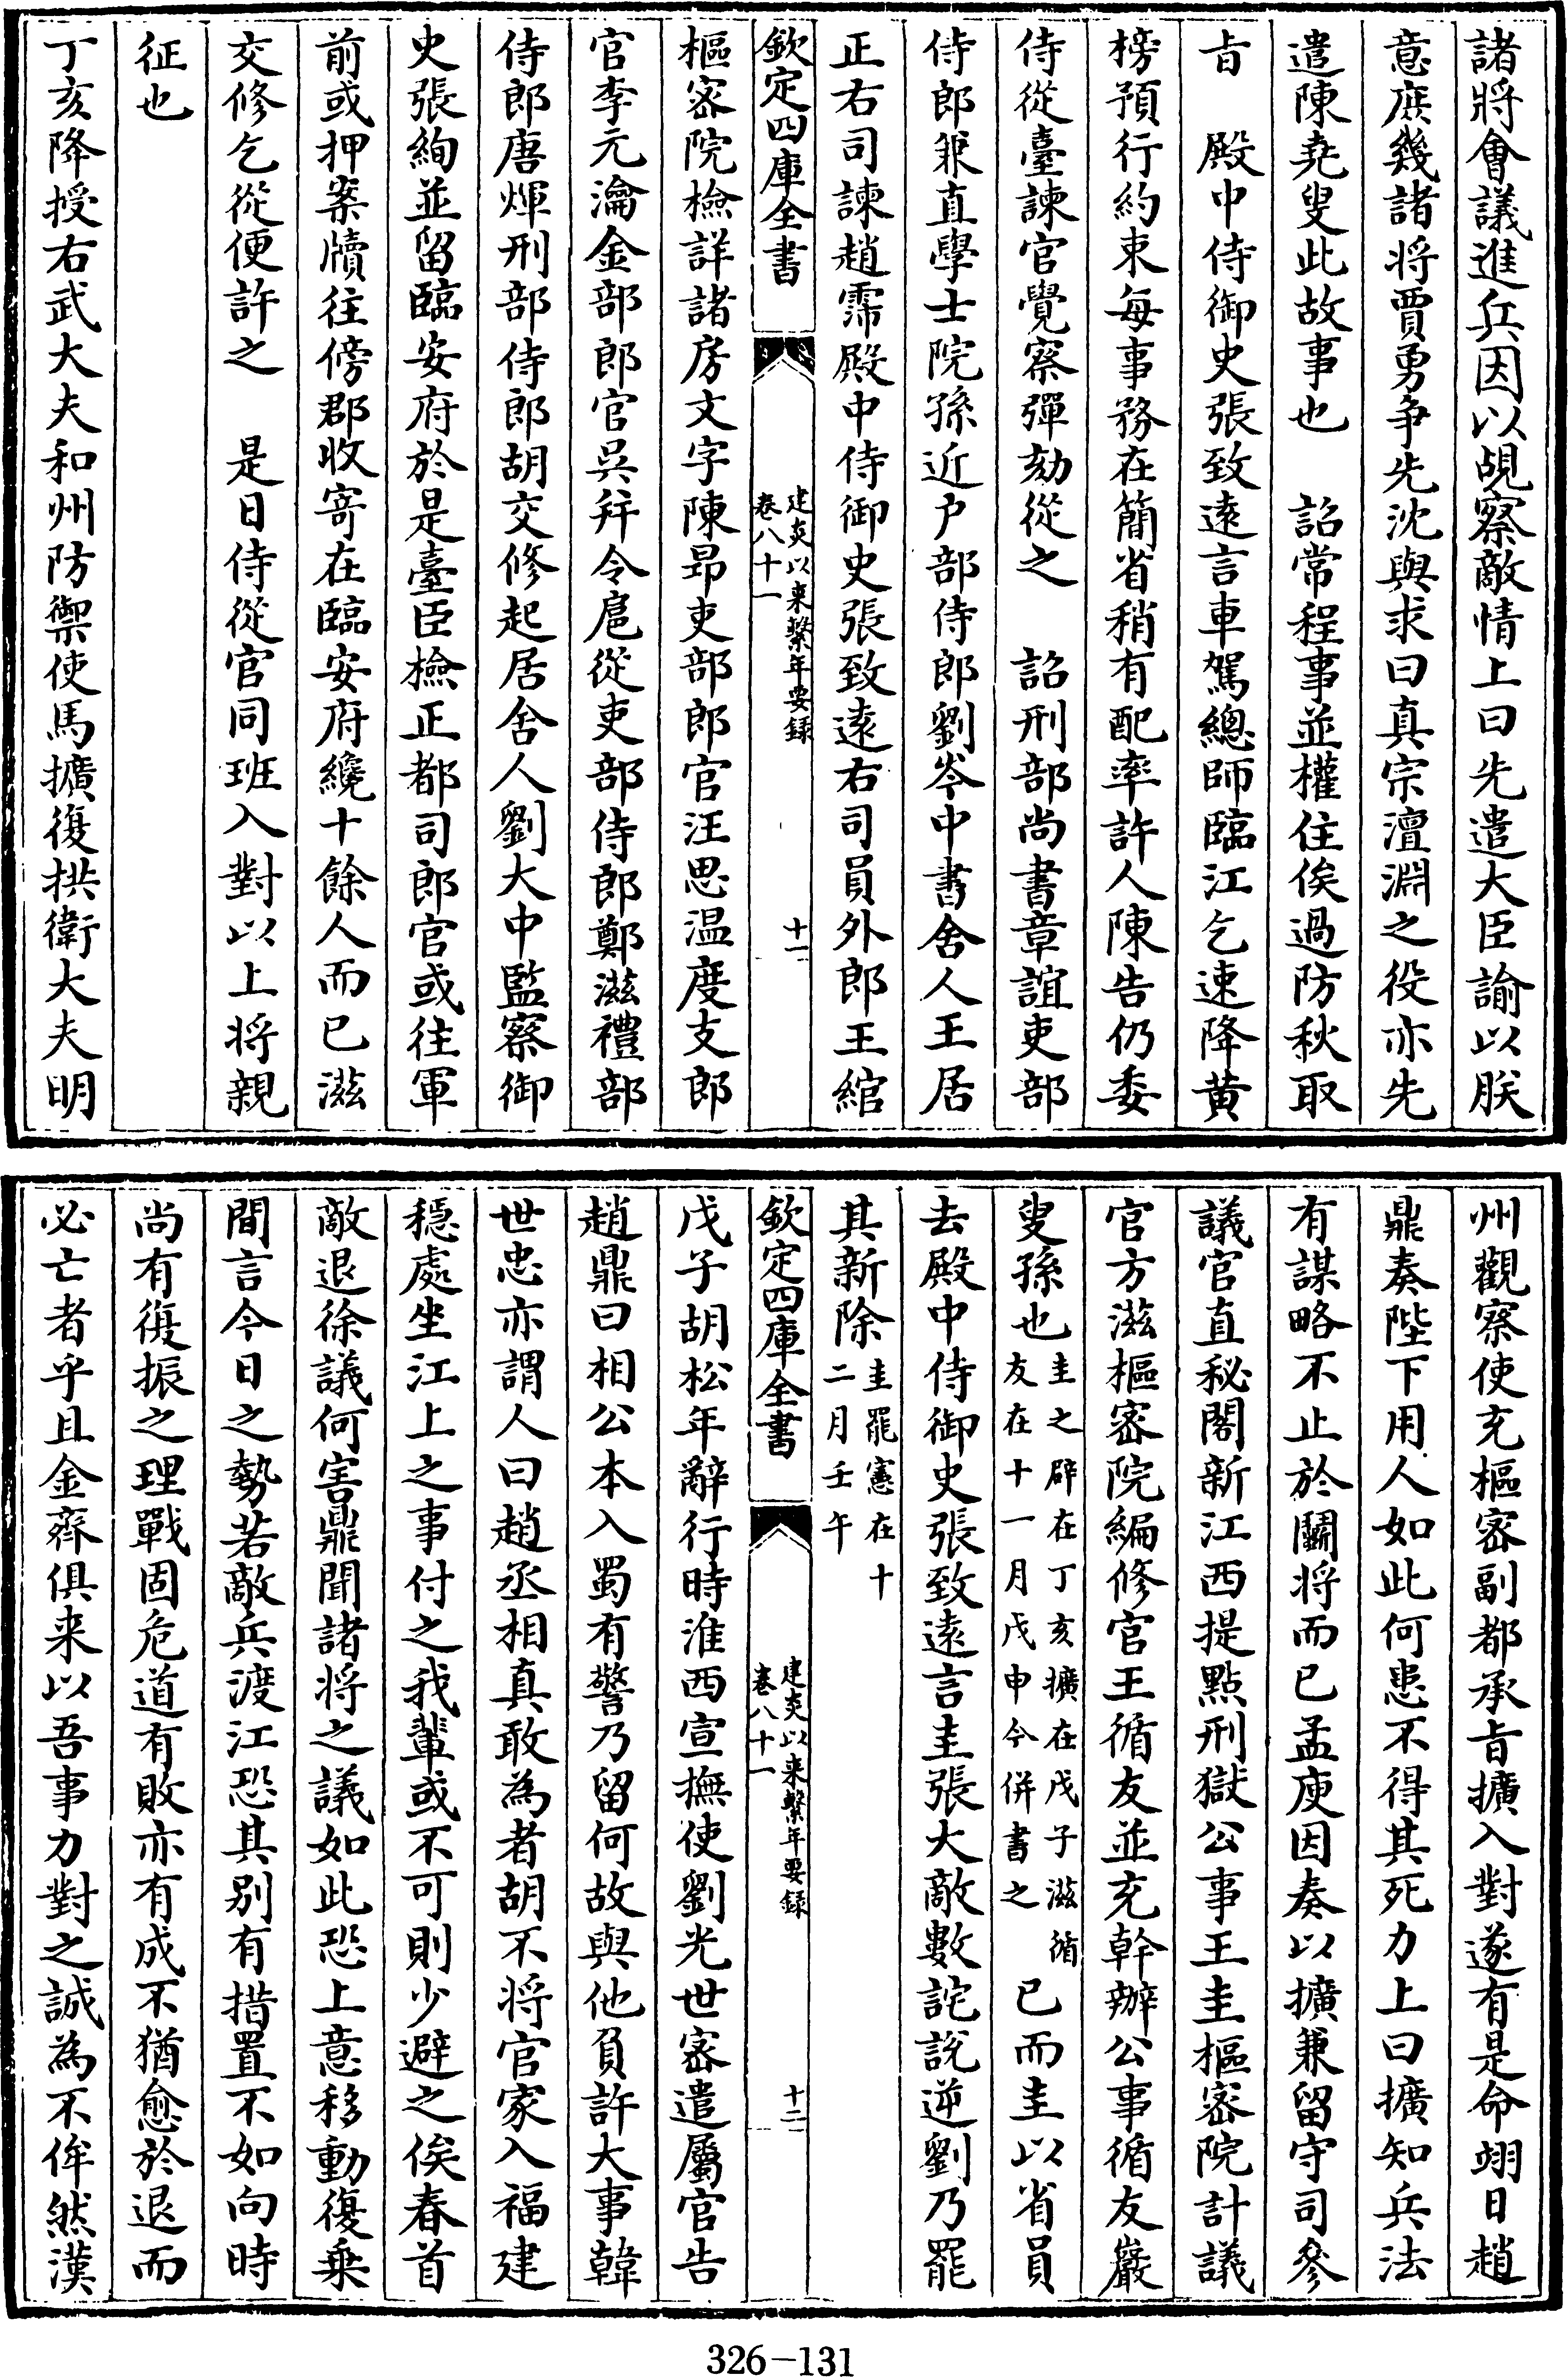 諸將會議進兵因以覘察敵情上曰先遣大臣諭以朕
意庶幾諸將賈勇争先沈與求曰真宗澶淵之役亦先
遣陳堯叟此故事也　詔常程事並權住俟過防秋取
旨　殿中侍御史張致逺言車駕總師臨江乞速降黄
榜預行約束每事務在簡省稍有配率許人陳告仍委
侍從臺諫官覺察彈劾從之　詔刑部尚書章誼吏部
侍郎兼直學士院孫近户部侍郎劉岑中書舍人王居
正右司諫趙霈殿中侍御史張致逺右司員外郎王綰
欽定四庫全書
建炎以来繫年要録
卷八十一
十一
樞密院檢詳諸房文字陳昻吏部郎官汪思温度支郎
官李元瀹金部郎官吳并令扈從吏部侍郎鄭滋禮部
侍郎唐煇刑部侍郎胡交修起居舍人劉大中監察御
史張絢並留臨安府於是臺臣檢正都司郎官或往軍
前或押案牘往傍郡收寄在臨安府纔十餘人而已滋
交修乞從便許之　是日侍從官同班入對以上将親
征也
丁亥降授右武大夫和州防禦使馬擴復拱衛大夫明
州觀察使充樞密副都承旨擴入對遂有是命翊日趙
鼎奏陛下用人如此何患不得其死力上曰擴知兵法
有謀略不止於鬭将而已孟庾因奏以擴兼留守司參
議官直秘閣新江西提點刑獄公事王圭樞密院計議
官方滋樞密院編修官王循友並充幹辦公事循友巖
叟孫也圭之辟在丁亥擴在戊子滋循
友在十一月戊申今併書之　已而圭以省員
去殿中侍御史張致逺言圭張大敵數詫說逆劉乃罷
其新除圭罷憲在十
二月壬午
欽定四庫全書
建炎以来繫年要録
卷八十一
十二
戊子胡松年辭行時淮西宣撫使劉光世密遣屬官告
趙鼎曰相公本入蜀有警乃留何故與他負許大事韓
世忠亦謂人曰趙丞相真敢為者胡不将官家入福建
穩處坐江上之事付之我輩或不可則少避之俟春首
敵退徐議何害鼎聞諸将之議如此恐上意移動復乗
間言今日之勢若敵兵渡江恐其别有措置不如向時
尚有復振之理戰固危道有敗亦有成不猶愈於退而
必亡者乎且金齊俱来以吾事力對之誠為不侔然漢
326-131